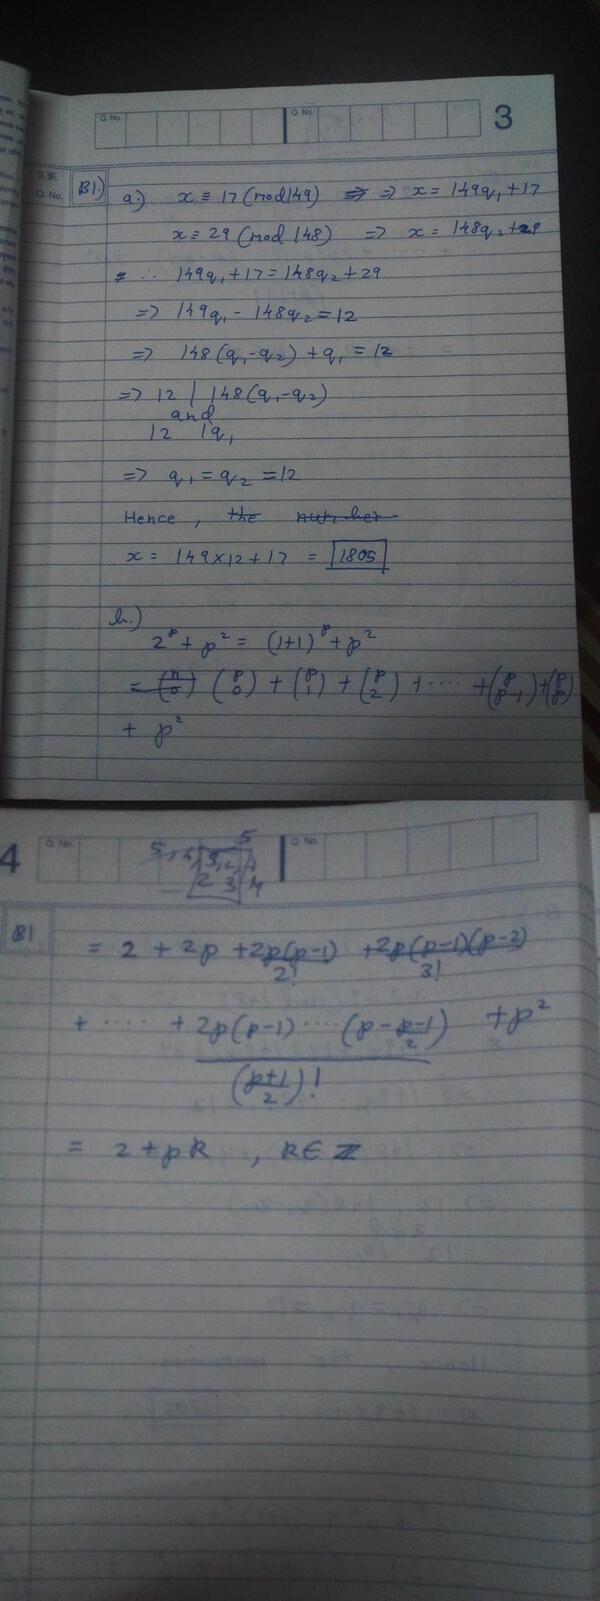 Q. No. Q. No. 3
Q. No. B1.) a.) x ≡ 17 (mod 149) ⇒ x = 149q₁ + 17
x ≡ 29 (mod 148) ⇒ x = 148q₂ + 29
∴ 149q₁ + 17 = 148q₂ + 29
⇒ 149q₁ - 148q₂ = 12
⇒ 148(q₁ - q₂) + q₁ = 12
⇒ 12 | 148(q₁ - q₂)
and
12 | q₁
⇒ q₁ = q₂ = 12
Hence, the number
x = 149 × 12 + 17 = 1805
b.)
2^p + p² = (1+1)^p + p²
= (n 0) (p 0) + (p 1) + (p 2) + ···· + (p p-1) + (p p)
+ p²
4 Q. No. 5, 4 5 Q. No.
3, 2
2 3 4
B1 = 2 + 2p + 2p(p-1)/2! + 2p(p-1)(p-2)/3!
+ ···· + 2p(p-1) ···· (p - p-1/2) / (p+1/2)! + p²
= 2 + pk , k ∈ Z